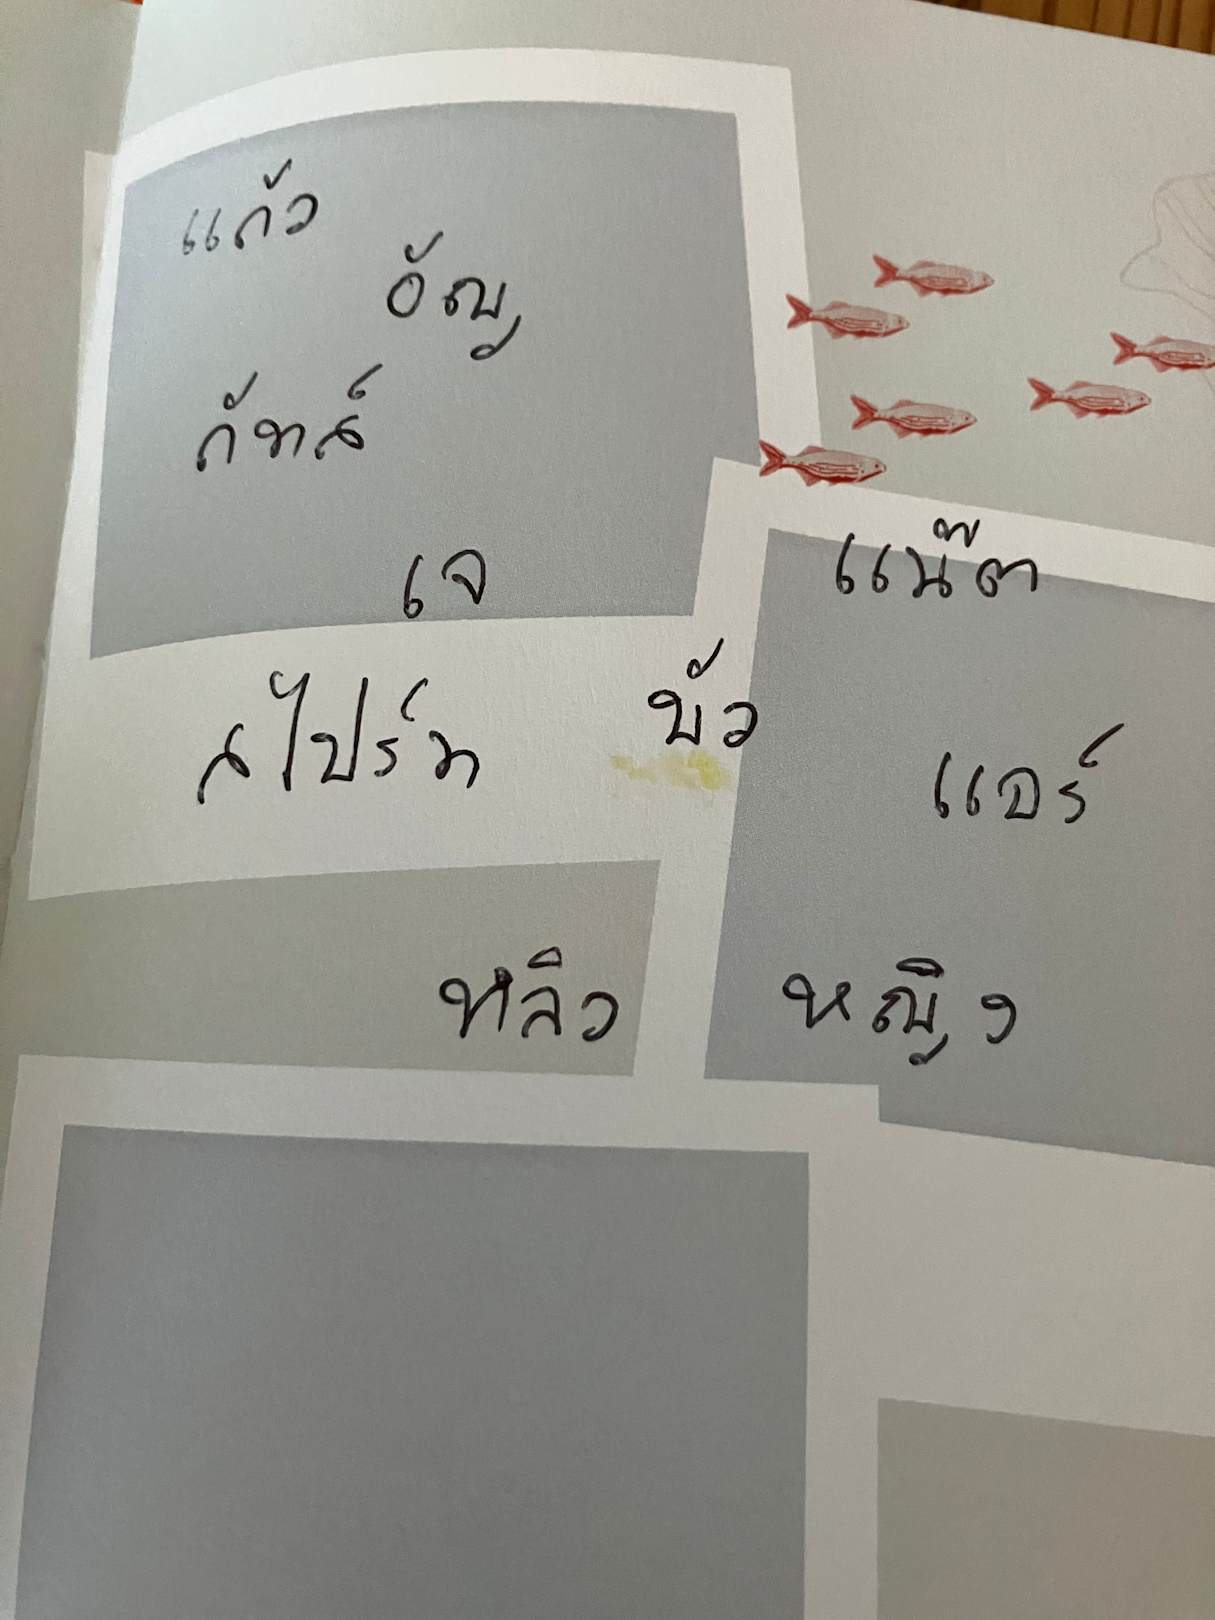 แก้ว
อัญ
กัทส์
เจ
แน๊ต
สไปร์ท
บัว
แอร์
หลิว
หญิง